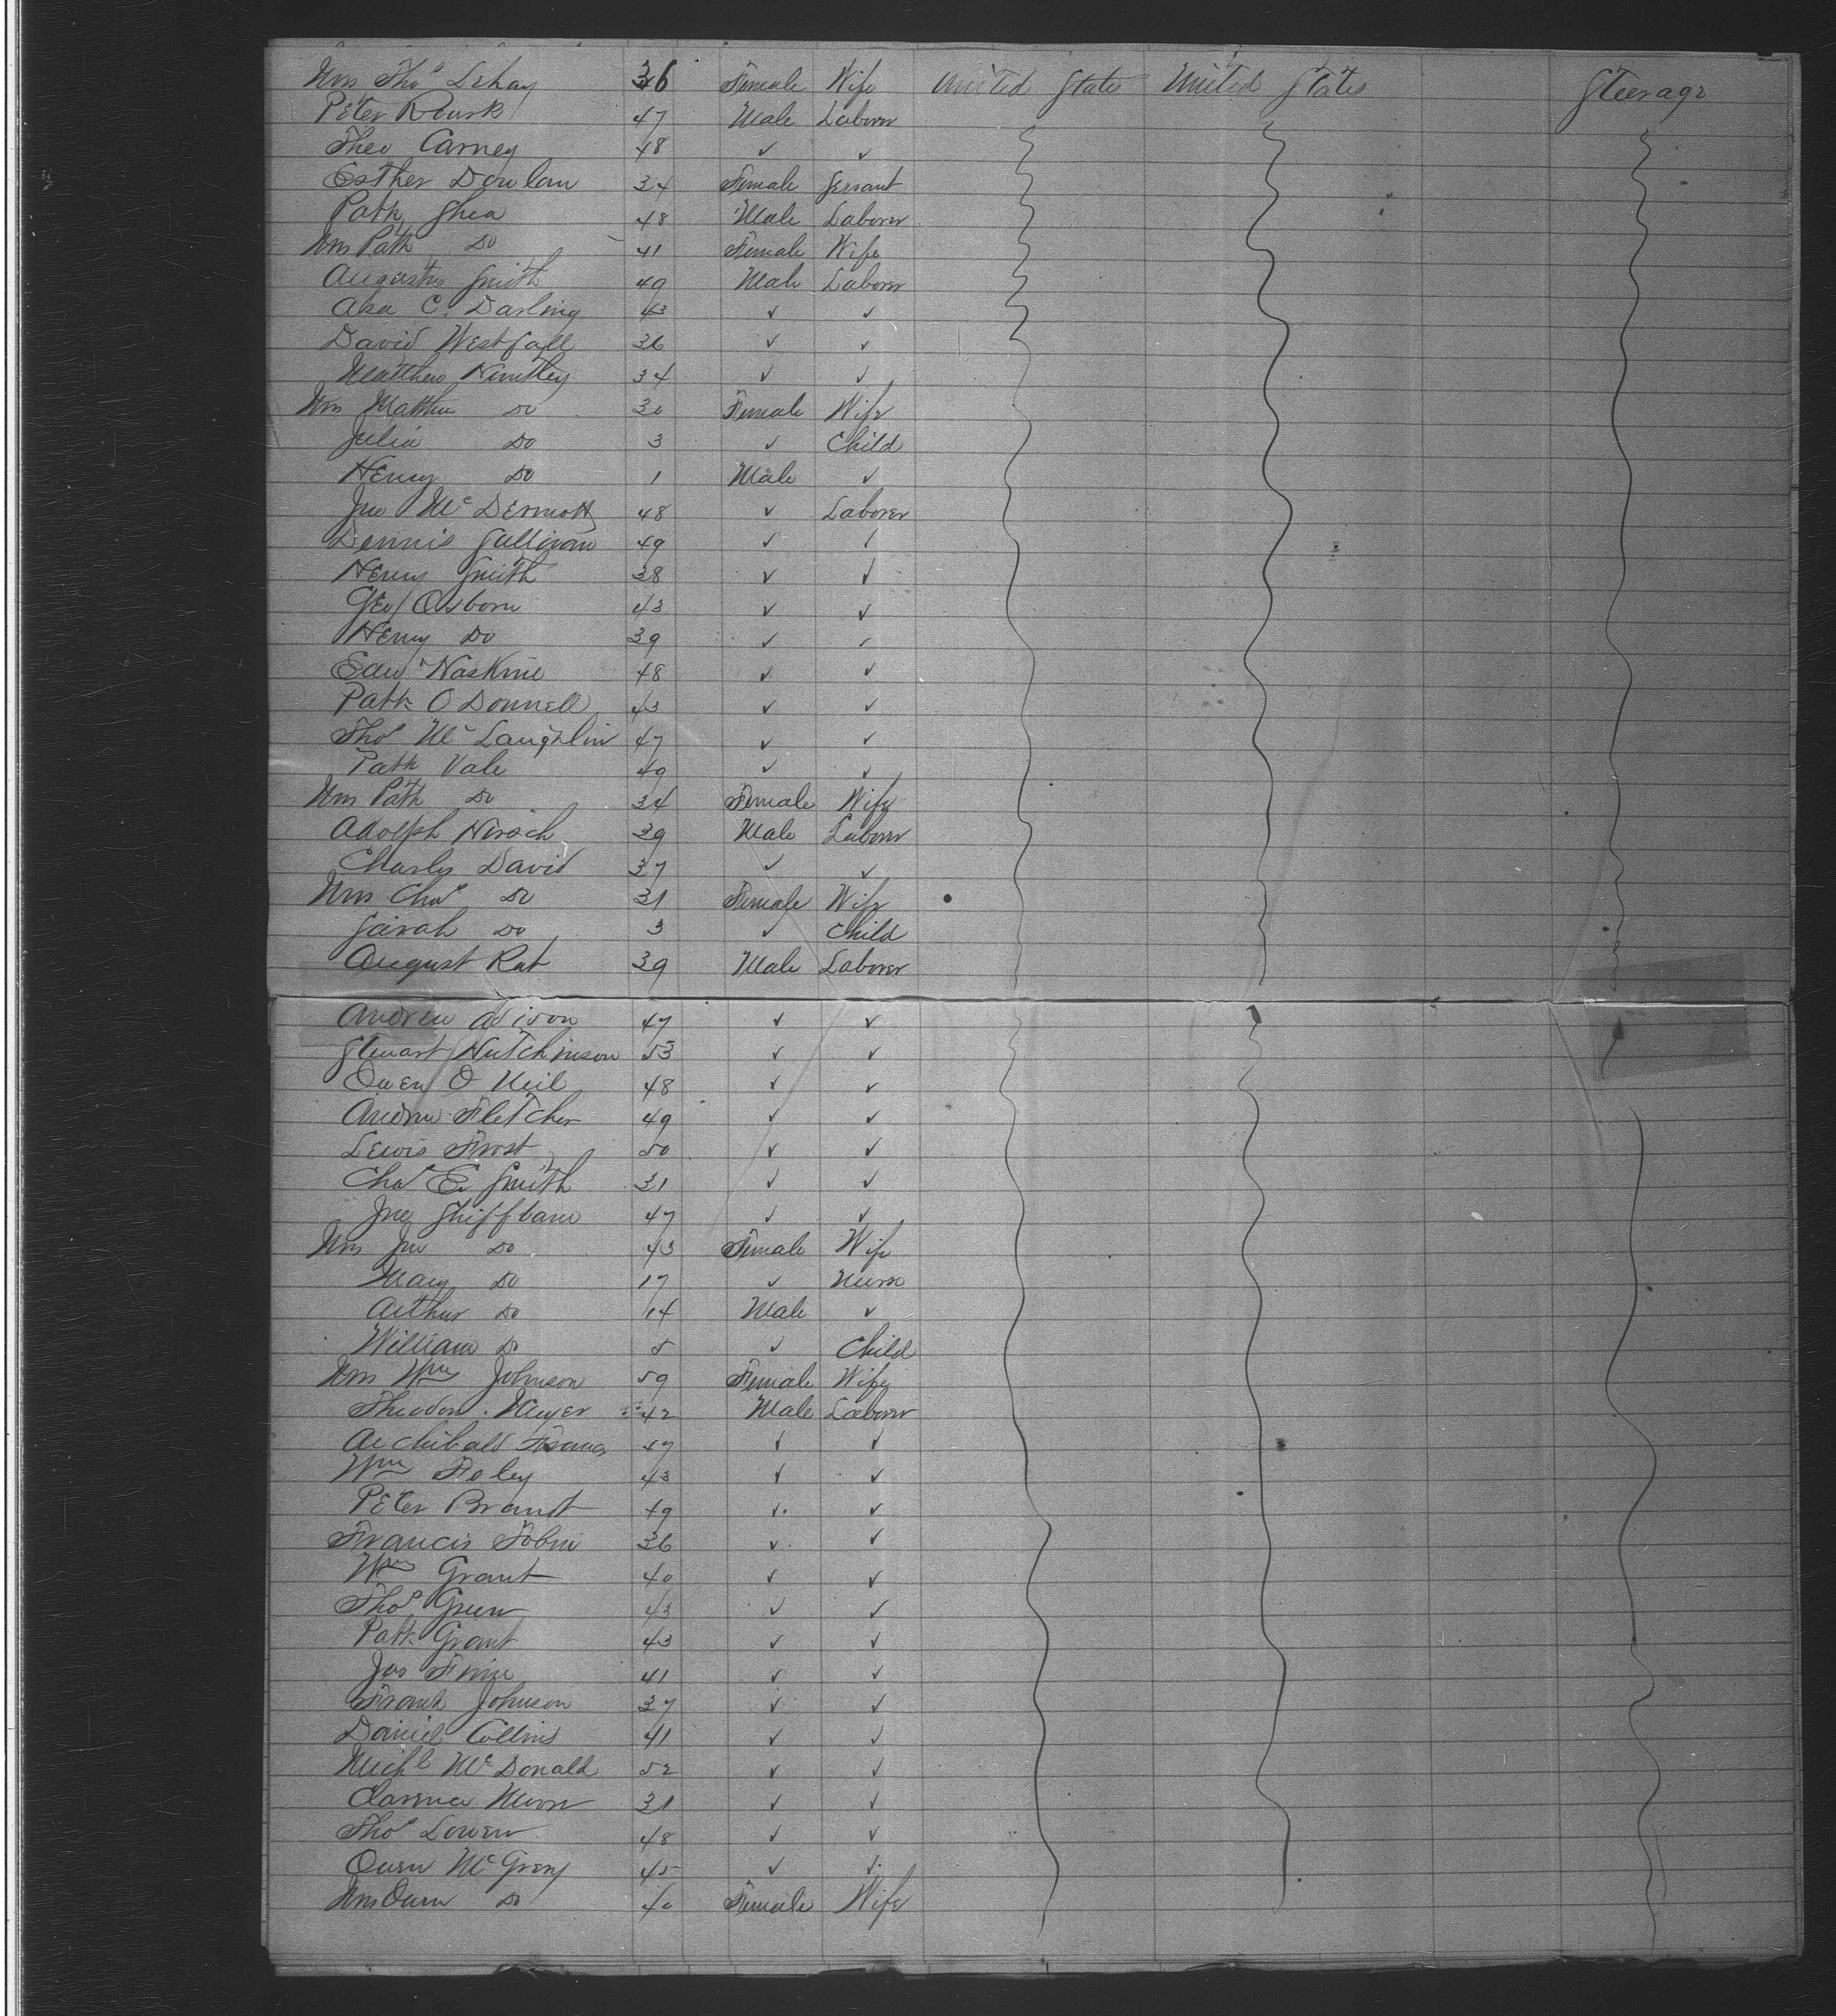 Mrs Thos Lehay 36 Female Wife United States United States Steerage
Peter Rourk 47 Male Laborer
Theo Carney 48 ✓ ✓
Esther Dowlan 34 Female Servant
Patk Shea 48 Male Laborer
Mrs Patk Do 41 Female Wife
Augustus Smith 49 Male Laborer
Asa C. Darling 43 ✓ ✓
David Westfall 36 ✓ ✓
Matthew Huntley 34 ✓ ✓
Mrs Matthew Do 30 Female Wife
Julia Do 3 ✓ Child
Henry Do 1 Male ✓
Jno McDermott 48 ✓ Laborer
Dennis Sullivan 49 ✓ ✓
Henry Smith 38 ✓ ✓
Geo Osborn 43 ✓ ✓
Henry Do 39 ✓ ✓
Edw Haskine 48 ✓ ✓
Patk O Donnell 43 ✓ ✓
Thos Mc Laughlin 47 ✓ ✓
Patk Vale 49 ✓ ✓
Mrs Patk Do 34 Female Wife
Adolph Hirsch 39 Male Laborer
Charles David 37 ✓ ✓
Mrs Chas Do 31 Female Wife
Sarah Do 3 ✓ Child
August Rat 39 Male Laborer
Andrew 47 ✓ ✓
Stewart Hutchinson 53 ✓ ✓
Owen O Neil 48 ✓ ✓
Andrew Fletcher 49 ✓ ✓
Lewis Frost 50 ✓ ✓
Chas E. Smith 31 ✓ ✓
Jno Shiffbaum 47 ✓ ✓
Mrs Jno Do 43 Female Wife
Mary Do 17 ✓ Nurse
Arthur Do 14 Male ✓
William Do 5 ✓ Child
Mrs Wm Johnson 59 Female Wife
Theodore Meyer 42 Male Laborer
Archibald Francis 47 ✓ ✓
Wm Foley 43 ✓ ✓
Peter Brandt 49 ✓ ✓
Francis Tobin 36 ✓ ✓
Wm Grant 40 ✓ ✓
Thos Green 43 ✓ ✓
Patk Grant 43 ✓ ✓
Jas 41 ✓ ✓
Frank Johnson 37 ✓ ✓
Daniel Collins 41 ✓ ✓
Michl McDonald 52 ✓ ✓
Clarence Moore 31 ✓ ✓
Thos Lowen 48 ✓ ✓
Owen Mc 45 ✓ ✓
Mrs Owen Do 40 Female Wife